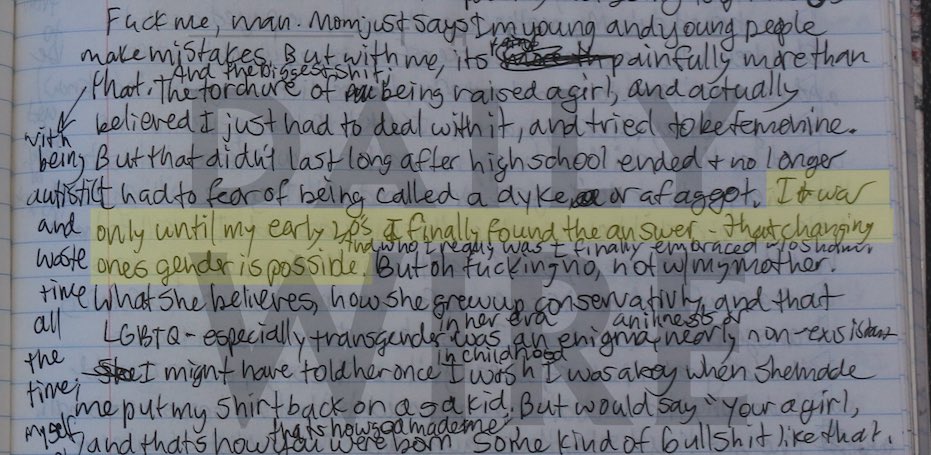 Fuck me, man. Mom just says I'm young and young people
make mistakes. But with me, its painfully more than
that. The torchure of being raised a girl, and actually
And the biggest shit,
believed I just had to deal with it, and tried to be femenine.
But that didn't last long after high school ended + no longer
had to fear of being called a dyke or a faggot. It was
only until my early 20's I finally found the answer - that changing
ones gender is possible. But oh fucking no, not w/ my mother.
And who I really was I finally embraced
What she believes, how she grew up conservativly, and that
LGBTQ - especially transgender was an enigma, nearly non-existant
in her era
I might have told her once I wish I was a boy when she made
in childhood
me put my shirt back on as a kid. But would say "your a girl,
and thats how you were born" Some kind of bullshit like that.
thats how god made me
with
being
autistict
and
waste
time
all
the
time;
myself,
DAILY
WIRE